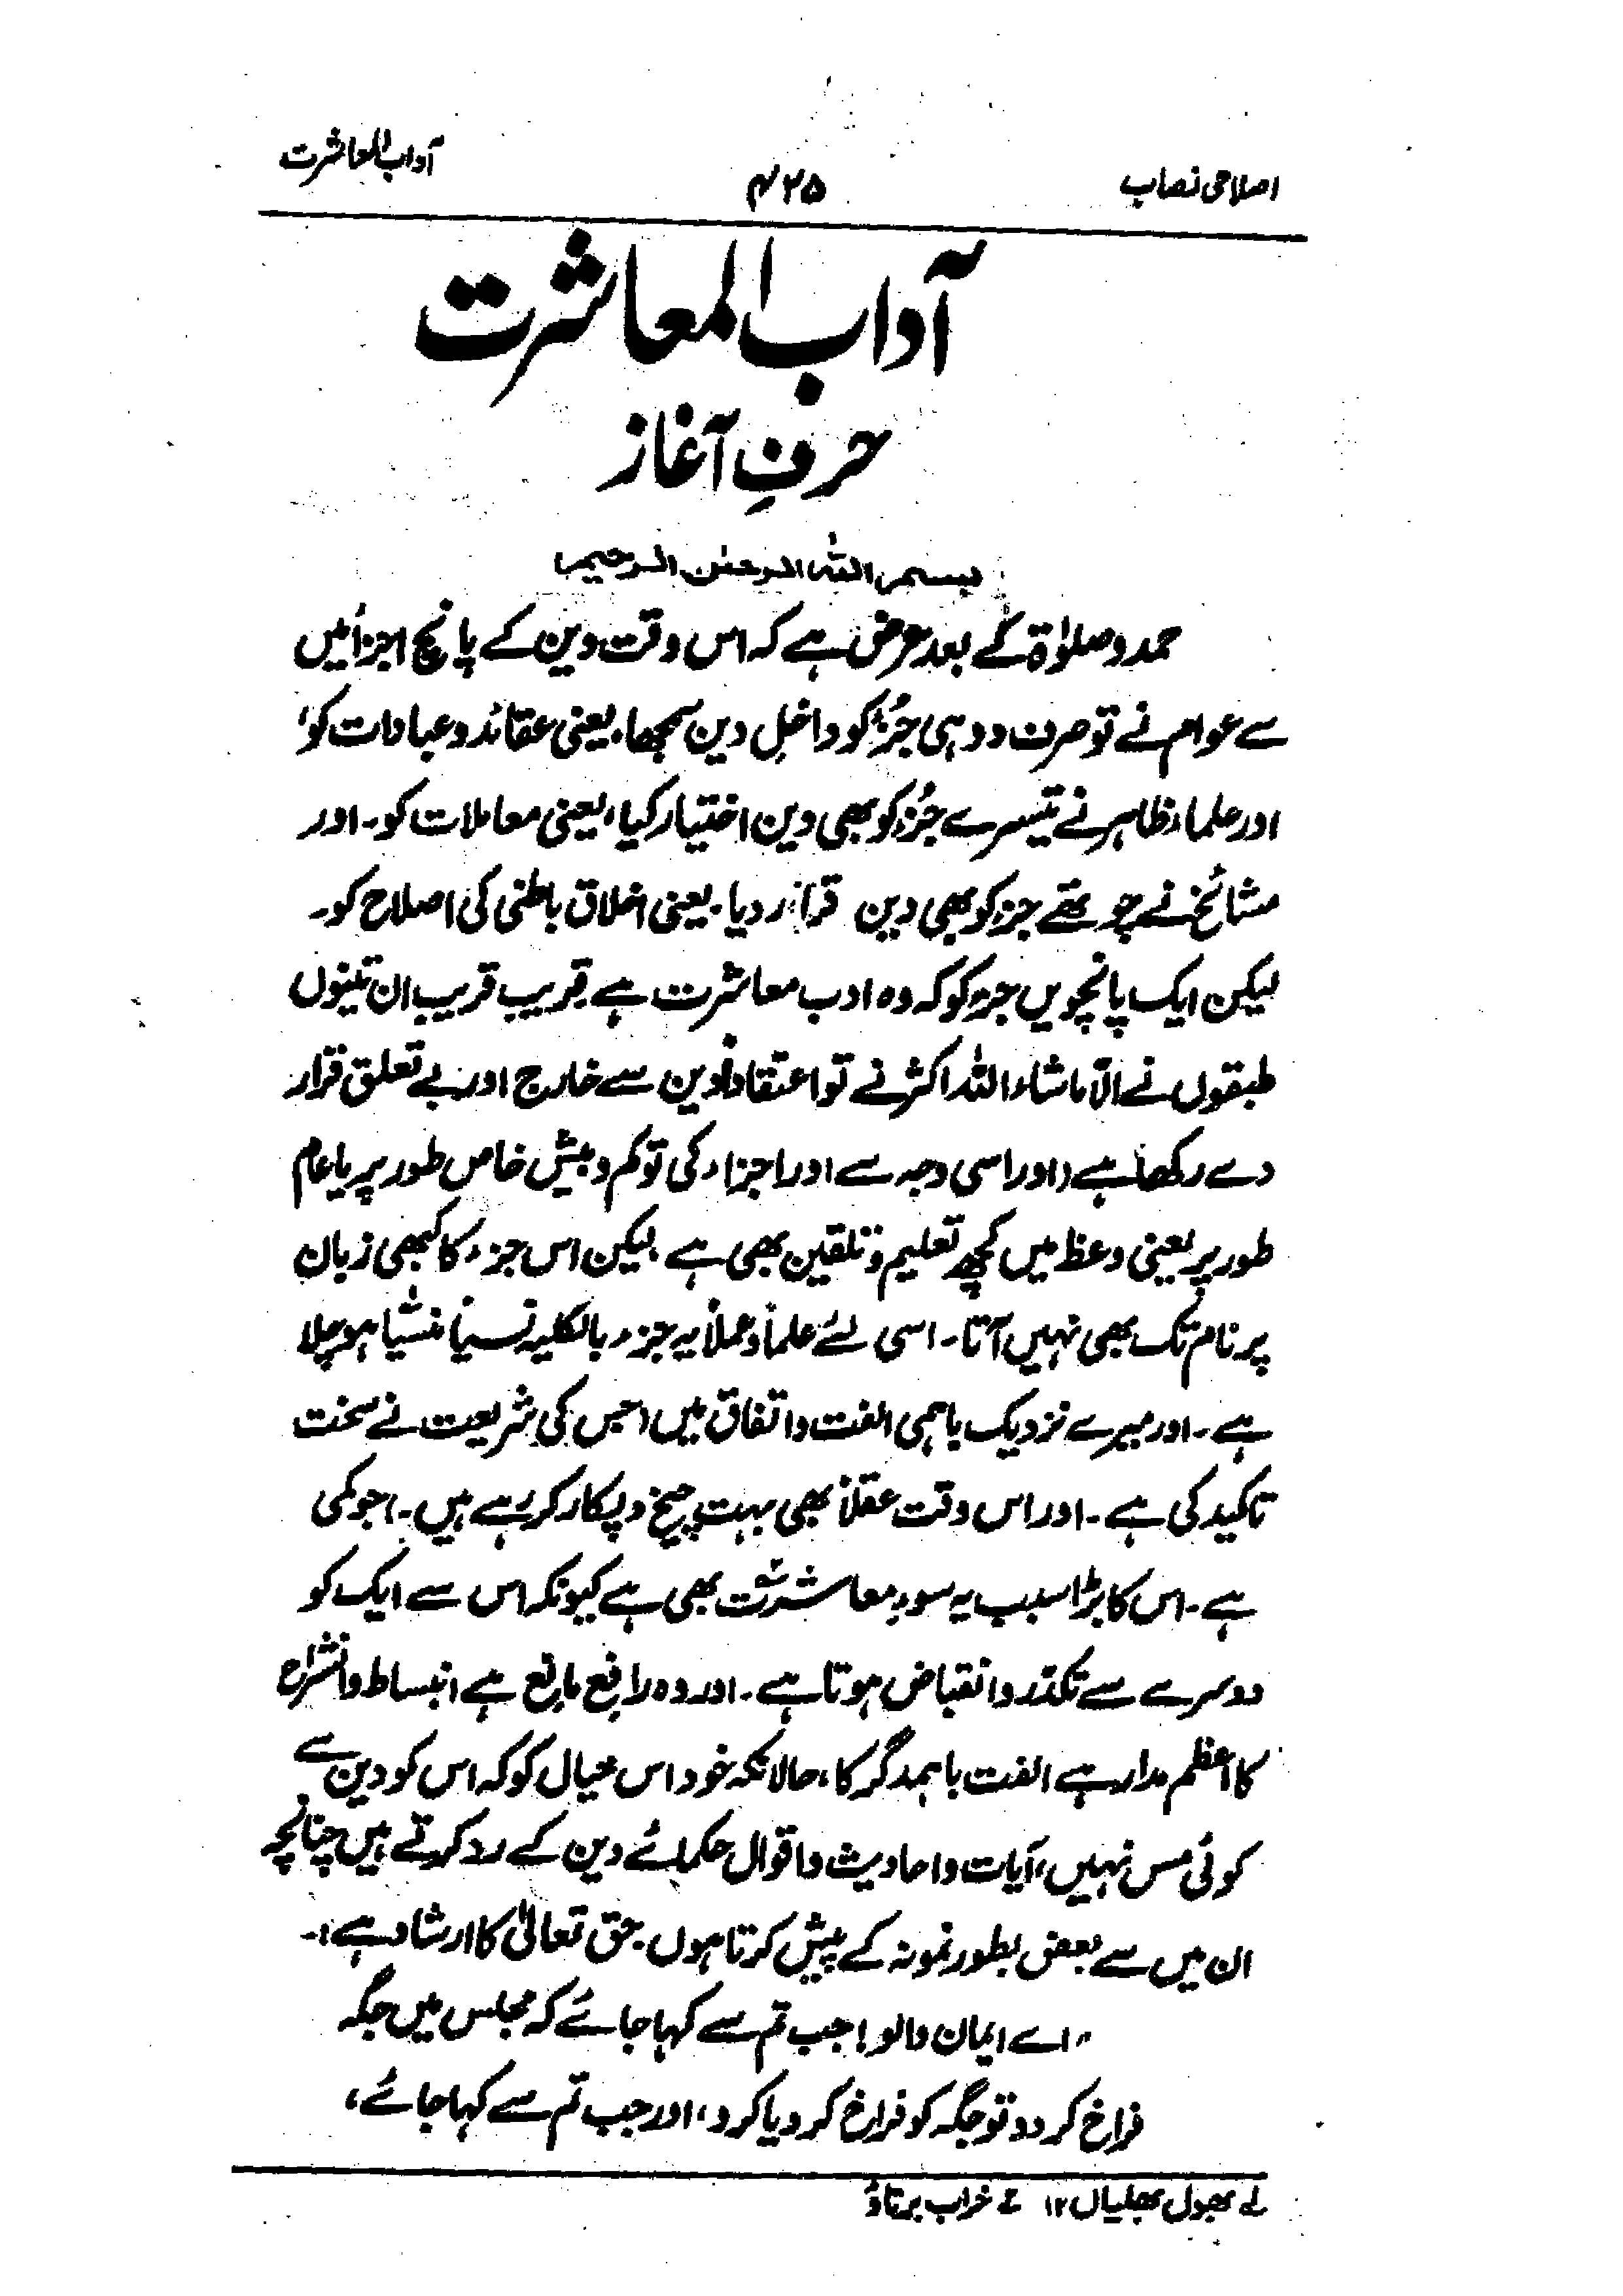 اصلاحی نصاب ۴۲۵ آداب المعاشرت
آداب المعاشرت
حرفِ آغاز
بسم اللہ الرحمٰن الرحیم
حمد و صلوٰۃ کے بعد عرض ہے کہ اس وقت دین کے پانچ اجزأ میں
سے عوام نے تو صرف دو ہی جُزء کو داخلِ دین سمجھا، یعنی عقائد و عبادات کو،
اور علماء ظاہر نے تیسرے جُزء کو بھی دین اختیار کیا، یعنی معاملات کو۔ اور
مشائخ نے چوتھے جزء کو بھی دین قرار دیا۔ یعنی اخلاق باطنی کی اصلاح کو۔
لیکن ایک پانچویں جزء کو کہ وہ ادب معاشرت ہے قریب قریب ان تینوں
طبقوں نے الّا ماشاء اللہ اکثر نے تو اعتقاداً دین سے خارج اور بے تعلق قرار
دے رکھا ہے (اور اسی وجہ سے اور اجزاء کی تو کم و بیش خاص طور پر یا عام
طور پر یعنی وعظ میں کچھ تعلیم و تلقین بھی ہے۔ لیکن اس جزء کا کبھی زبان
پر نام تک بھی نہیں آتا۔ اسی لئے علماً و عملاً یہ جزء بالکلیہ نسیاً منسیاً ہو چلا
ہے۔ اور میرے نزدیک باہمی الفت و اتفاق میں (جس کی شریعت نے سخت
تاکید کی ہے۔ اور اس وقت عقلاً بھی بہت چیخ و پکار کر رہے ہیں۔) جو کمی
ہے۔ اس کا بڑا سبب یہ سوءِ معاشرت بھی ہے کیونکہ اس سے ایک کو
دوسرے سے تکدّر و انقباض ہوتا ہے۔ اور وہ رافع مانع ہے انبساط و انشراح
کا اعظم مدار ہے الفت باہمدگر کا، حالانکہ خود اس خیال کو کہ اس کو دین سے
کوئی مس نہیں، آیات و احادیث و اقوال حکمائے دین کے رد کرتے ہیں چنانچہ
ان میں سے بعض بطور نمونہ کے پیش کرتا ہوں۔ حق تعالیٰ کا ارشاد ہے:۔
"اے ایمان والو! جب تم سے کہا جائے کہ مجلس میں جگہ
فراخ کر دو تو جگہ کو فراخ کر دیا کرو، اور جب تم سے کہا جائے،
لے بھول بھلیاں ۱۲ ۲ے خراب برتاؤ